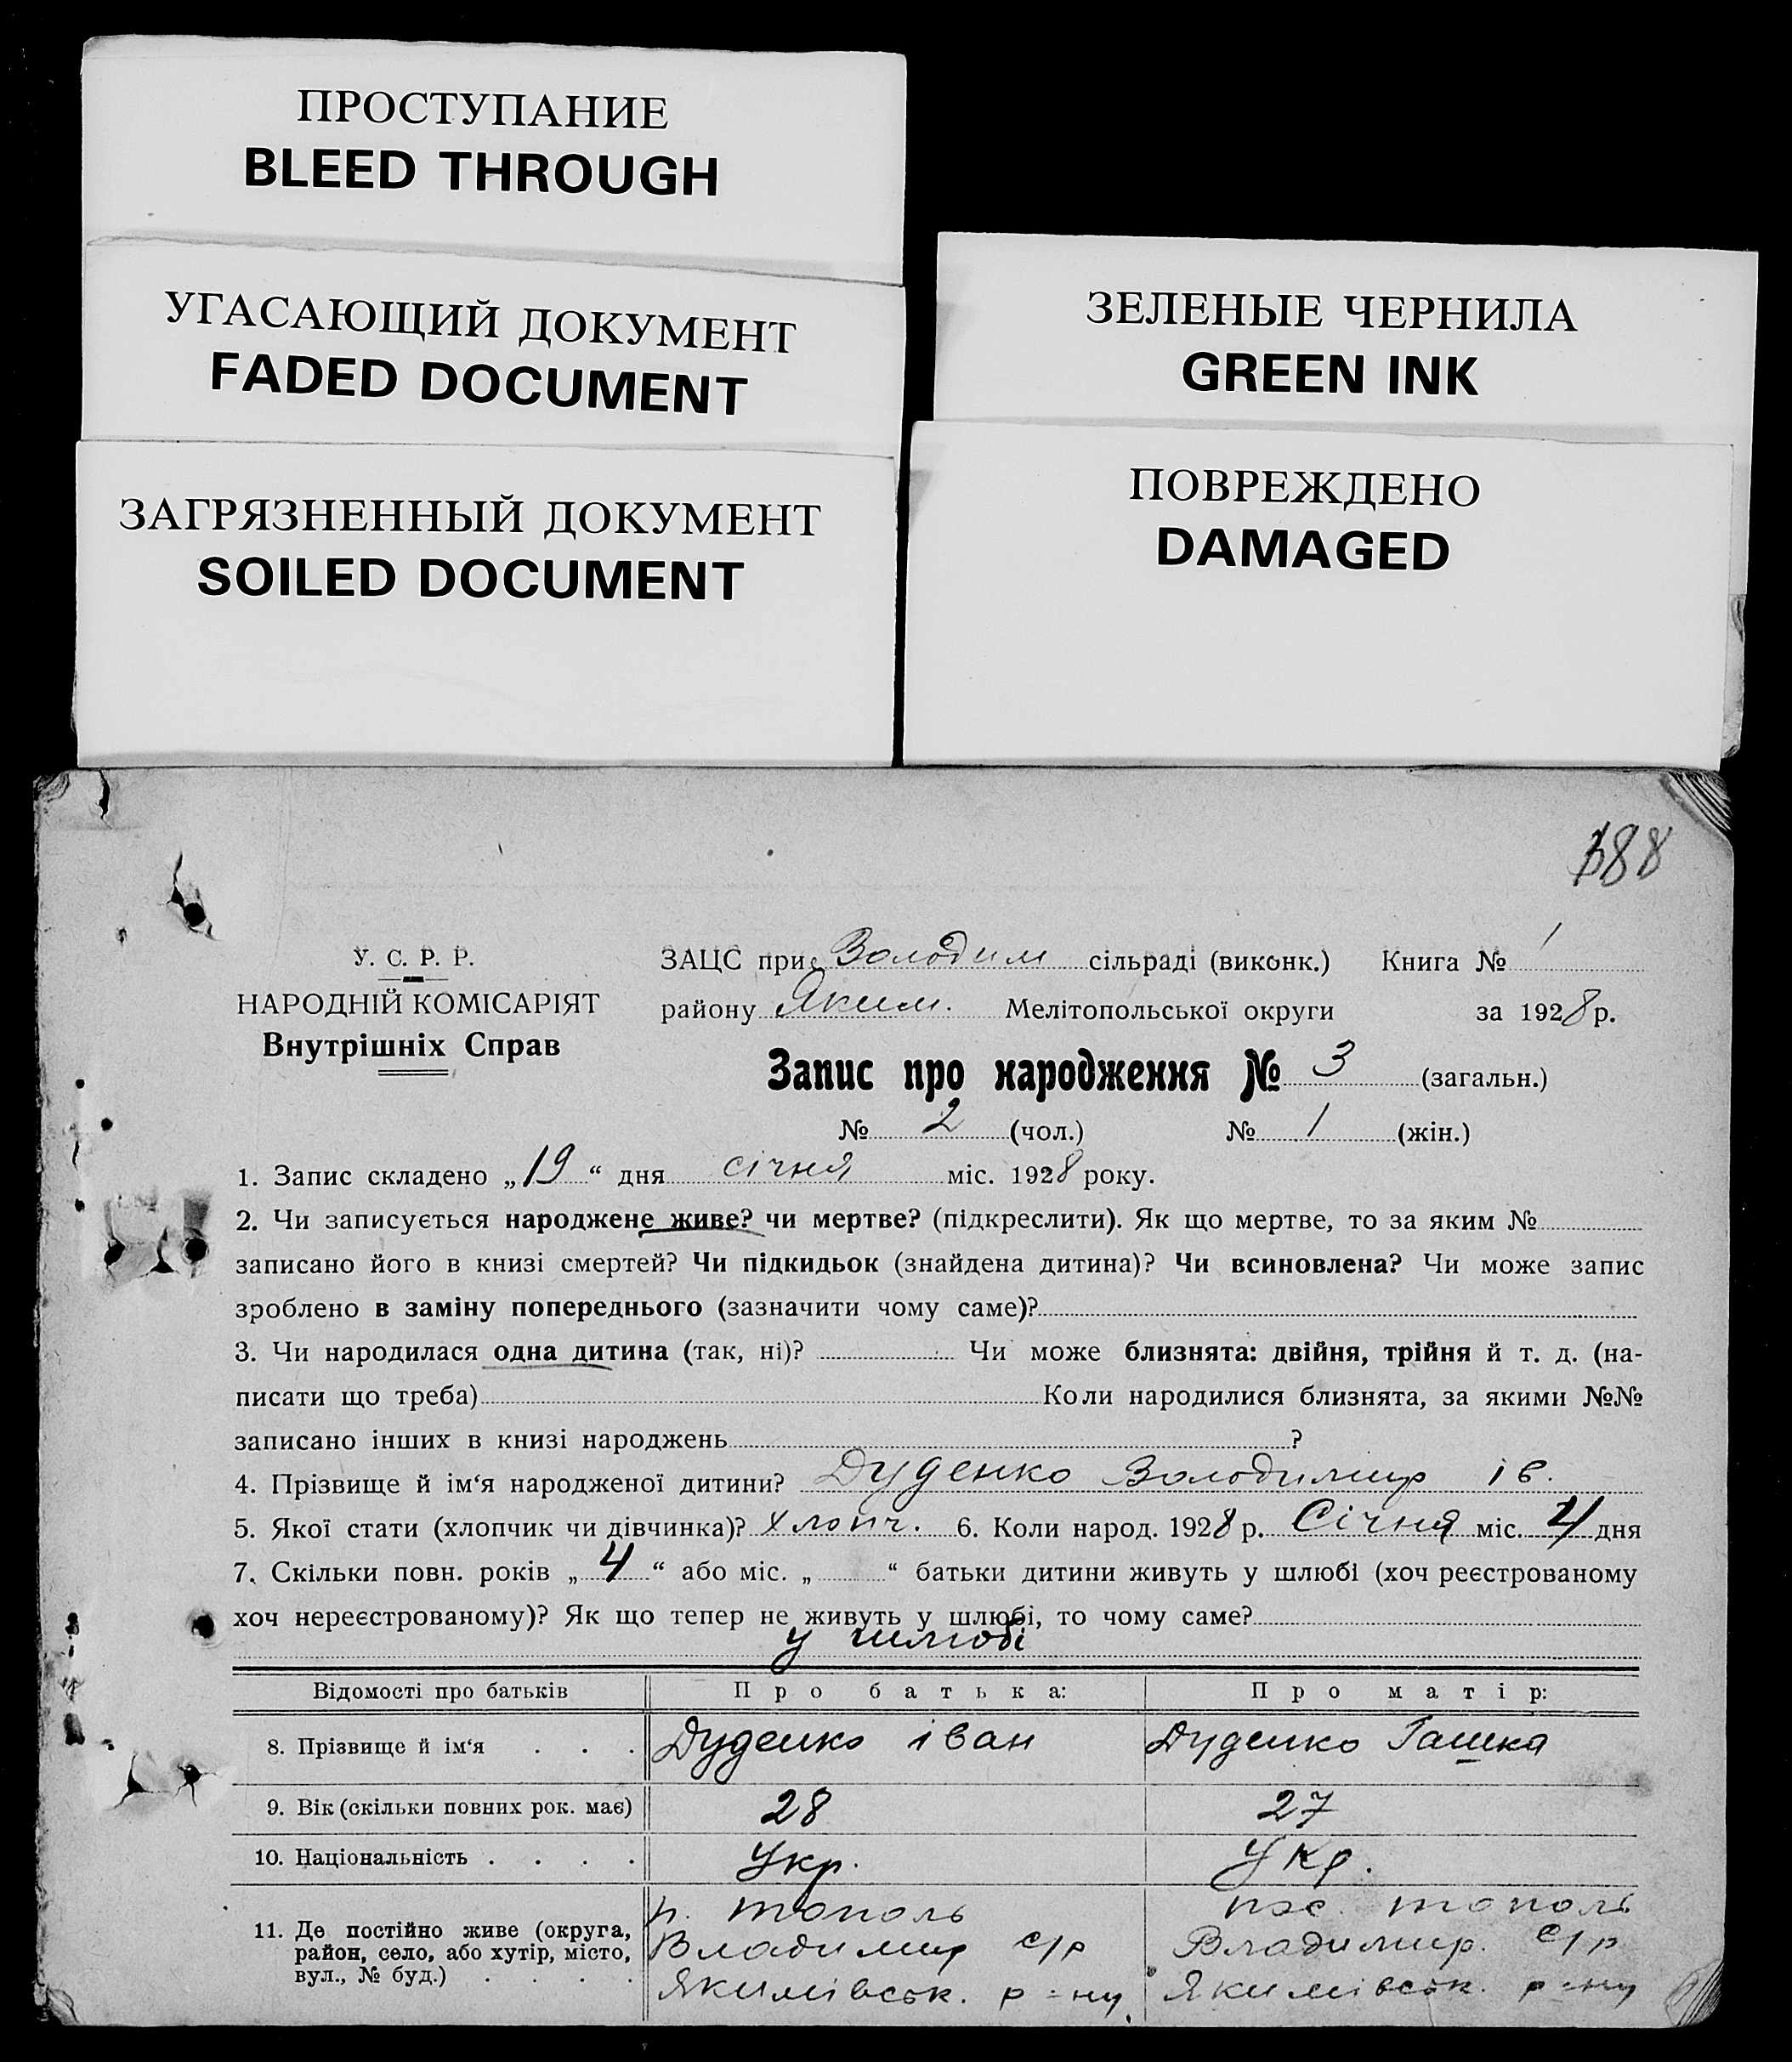 ПРОСТУПАНИЕ
BLEED THROUGH
УГАСАЮЩИЙ ДОКУМЕНТ
FADED DOCUMENT
ЗАГРЯЗНЕННЫЙ ДОКУМЕНТ
SOILED DOCUMENT
ЗЕЛЕНЫЕ ЧЕРНИЛА
GREEN INK
ПОВРЕЖДЕНО
DAMAGED
388
У. С. Р. Р.
НАРОДНІЙ КОМІСАРІЯТ
Внутрішніх Справ
ЗАЦС при Володим сільраді (виконк.) Книга № 1
району Яким. Мелітопольської округи за 1928 р.
Запис про народження № 3 (загальн.)
№ 2 (чол.) № 1 (жін.)
1. Запис складено „19“ дня січня міс. 1928 року.
2. Чи записується народжене живе? чи мертве? (підкреслити). Як що мертве, то за яким №
записано його в книзі смертей? Чи підкидьок (знайдена дитина)? Чи всиновлена? Чи може запис
зроблено в заміну попереднього (зазначити чому саме)?
3. Чи народилася одна дитина (так, ні)? Чи може близнята: двійня, трійня й т. д. (на-
писати що треба) Коли народилися близнята, за якими №№
записано інших в книзі народжень ?
4. Прізвище й ім‘я народженої дитини? Дуденко Володимир ів.
5. Якої стати (хлопчик чи дівчинка)? хлопч. 6. Коли народ. 1928 р. Січня міс. 4 дня
7. Скільки повн. років „4“ або міс. „ “ батьки дитини живуть у шлюбі (хоч реєстрованому
хоч нереєстрованому)? Як що тепер не живуть у шлюбі, то чому саме?
у шлюбі
Відомості про батьків Про батька: Про матір:
8. Прізвище й ім‘я . . . Дуденко іван Дуденко Гашка
9. Вік (скільки повних рок. має) 28 27
10. Національність . . . . Укр. Укр.
11. Де постійно живе (округа, район, село, або хутір, місто, вул., № буд.) . . . .
п. тополь
Владимир с/р
Якимівськ. р=ну.
пос. тополь
Владимир. с/р
Якимівськ. р=ну